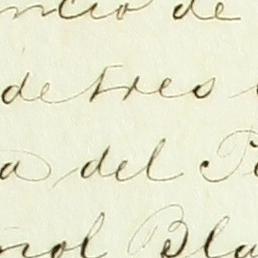 ncio de
de tres
a del P
ñol Bla